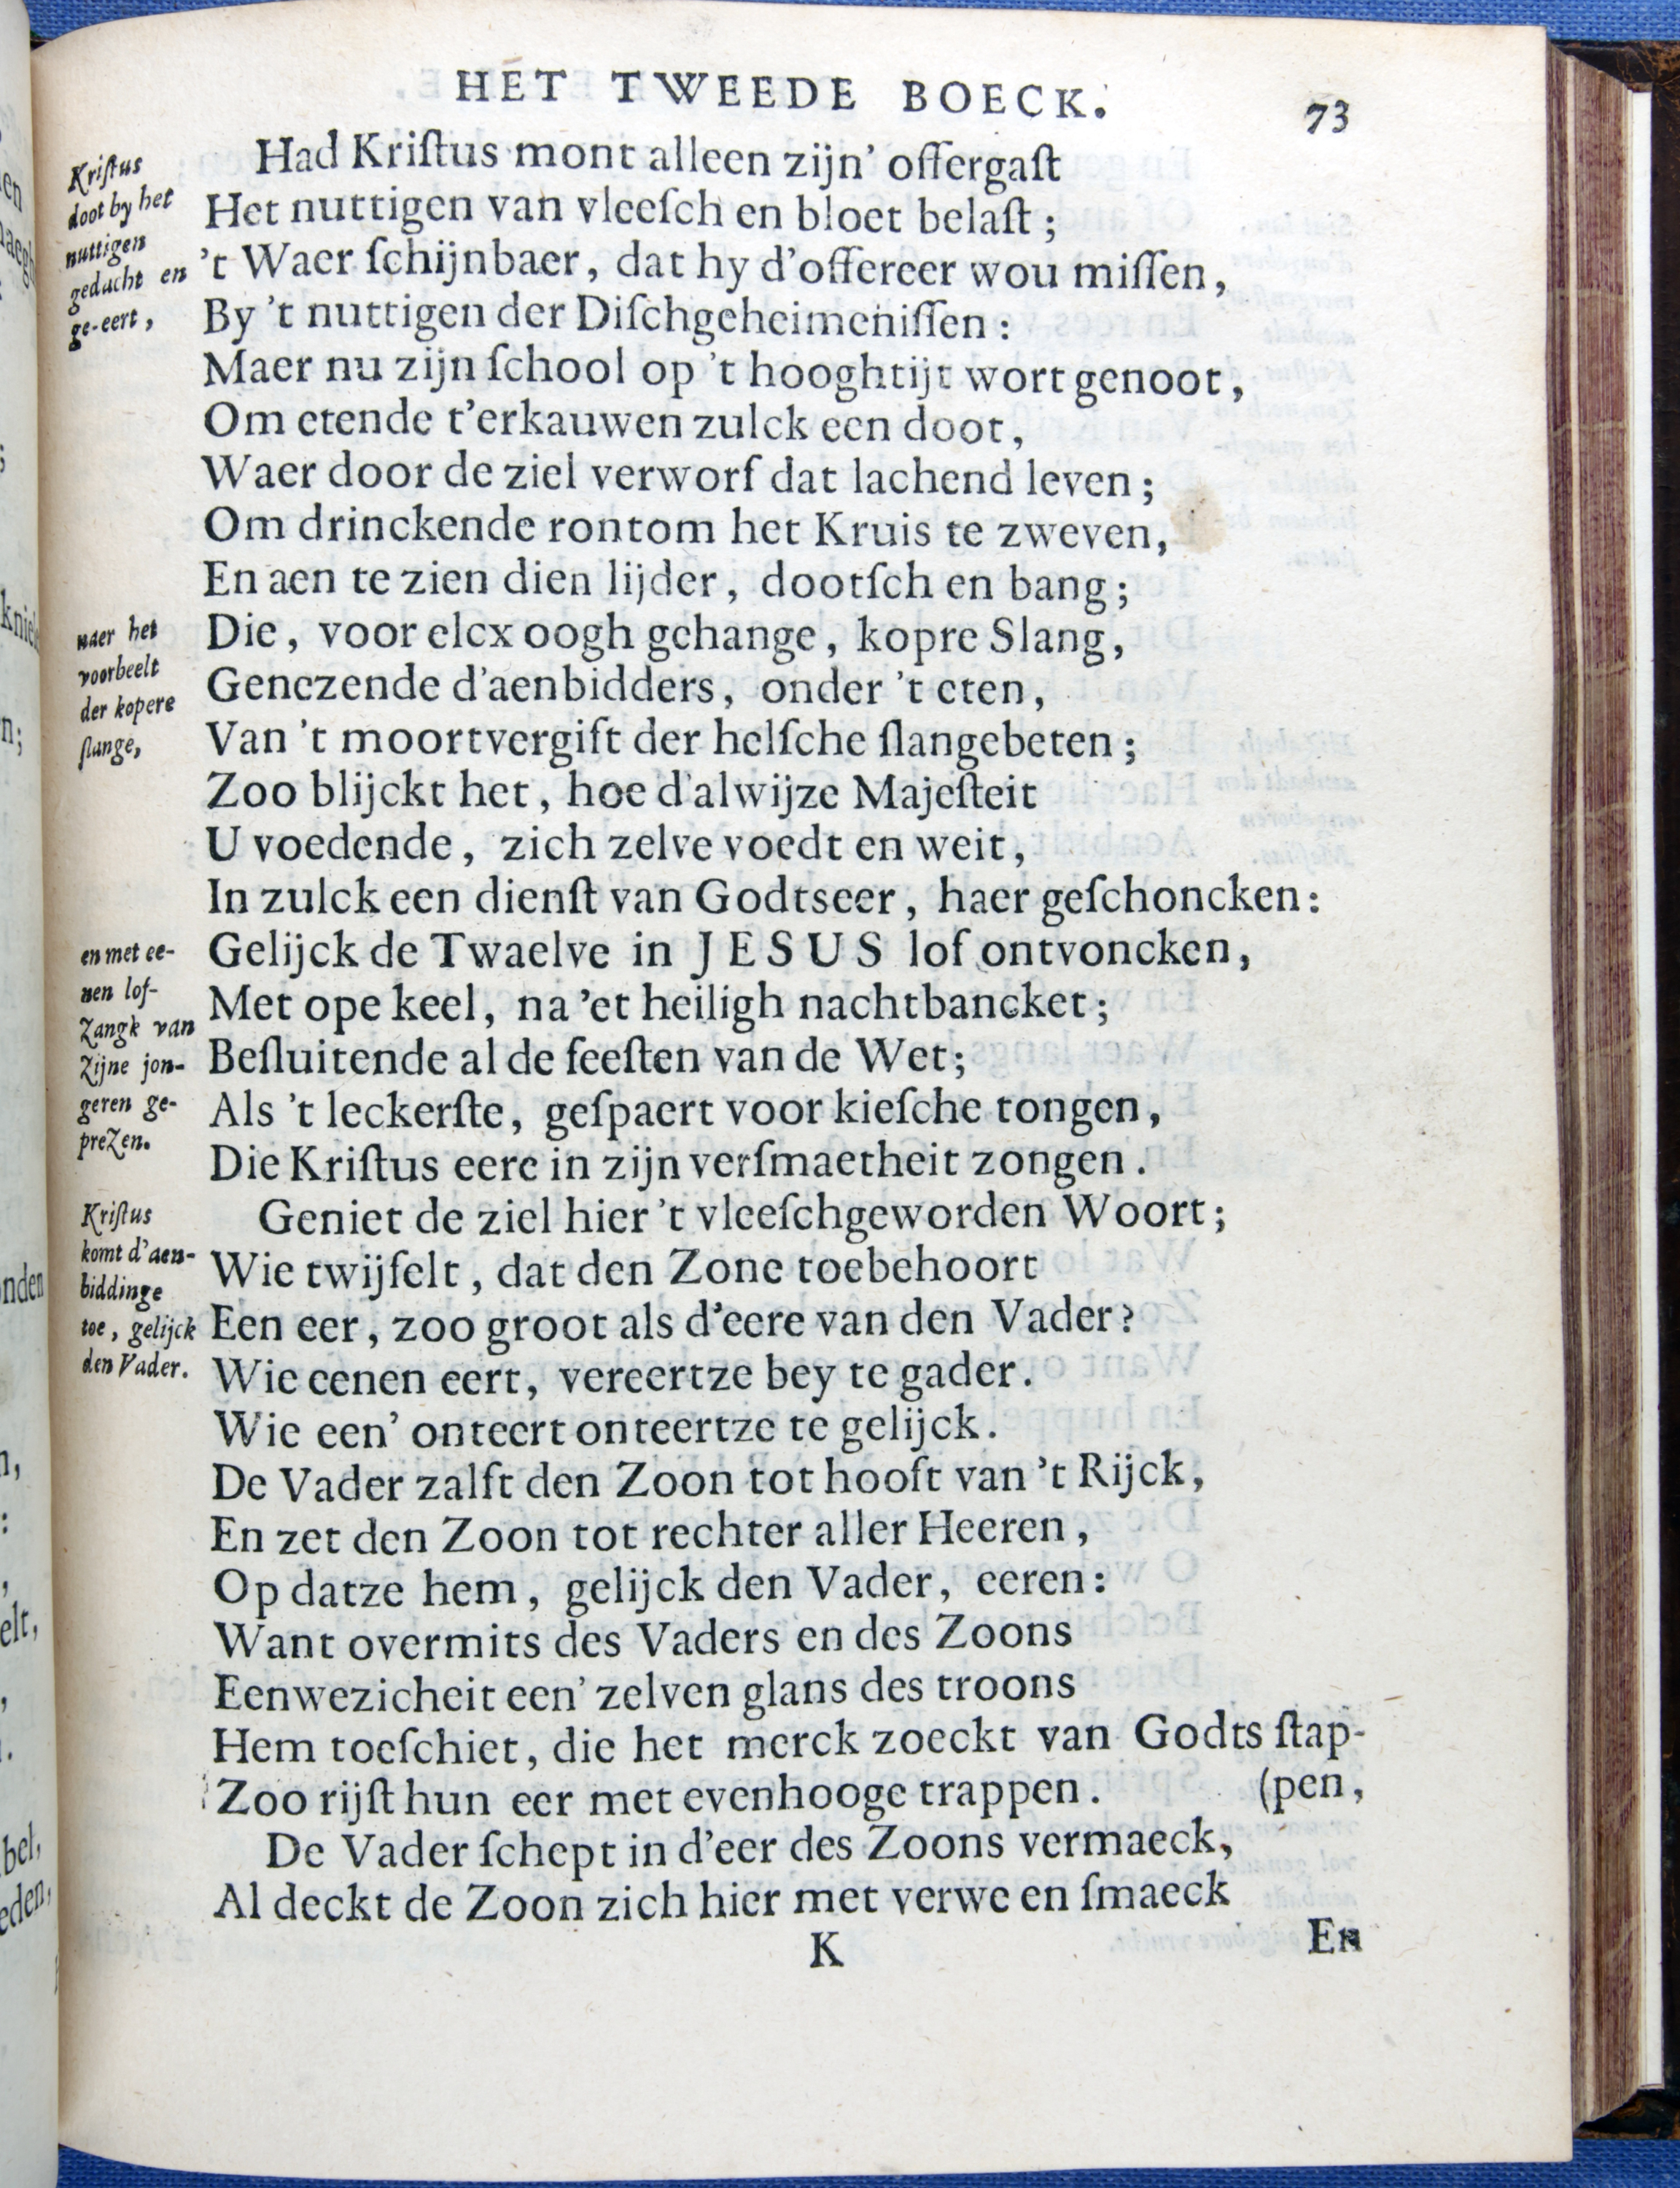 HET TWEEDE BOECK. 73
Kriſtus
doot by het
nuttigen
gedacht en
ge-eert,
Had Kriſtus mont alleen zijn' offergaſt
Het nuttigen van vleeſch en bloet belaſt;
't Waer ſchijnbaer, dat hy d'offereer wou miſſen,
By 't nuttigen der Diſchgeheimeniſſen:
Maer nu zijn ſchool op 't hooghtijt wort genoot,
Om etende t'erkauwen zulck een doot,
Waer door de ziel verworf dat lachend leven;
Om drinckende rontom het Kruis te zweven,
En aen te zien dien lijder, dootſch en bang;
naer het
voorbeelt
der kopere
ſlange,
Die, voor elcx oogh gehange, kopre Slang,
Genezende d'aenbidders, onder 't eten,
Van 't moortvergift der helſche ſlangebeten;
Zoo blijckt het, hoe d'alwijze Majeſteit
U voedende, zich zelve voedt en weit,
In zulck een dienſt van Godtseer, haer geſchoncken:
en met ee-
nen lof-
zangk van
zijne jon-
geren ge-
prezen.
Gelijck de Twaelve in JESUS lof ontvoncken,
Met ope keel, na 'et heiligh nachtbancket;
Beſluitende al de feeſten van de Wet;
Als 't leckerſte, geſpaert voor kieſche tongen,
Die Kriſtus eere in zijn verſmaetheit zongen.
Kriſtus
komt d'aen-
biddinge
toe, gelijck
den Vader.
Geniet de ziel hier 't vleeſchgeworden Woort;
Wie twijfelt, dat den Zone toebehoort
Een eer, zoo groot als d'eere van den Vader?
Wie eenen eert, vereertze bey te gader.
Wie een' onteert onteertze te gelijck.
De Vader zalft den Zoon tot hooft van 't Rijck,
En zet den Zoon tot rechter aller Heeren,
Op datze hem, gelijck den Vader, eeren:
Want overmits des Vaders en des Zoons
Eenwezicheit een' zelven glans des troons
Hem toeſchiet, die het merck zoeckt van Godts ſtap-
Zoo rijſt hun eer met evenhooge trappen. (pen,
De Vader ſchept in d'eer des Zoons vermaeck,
Al deckt de Zoon zich hier met verwe en ſmaeck
K En